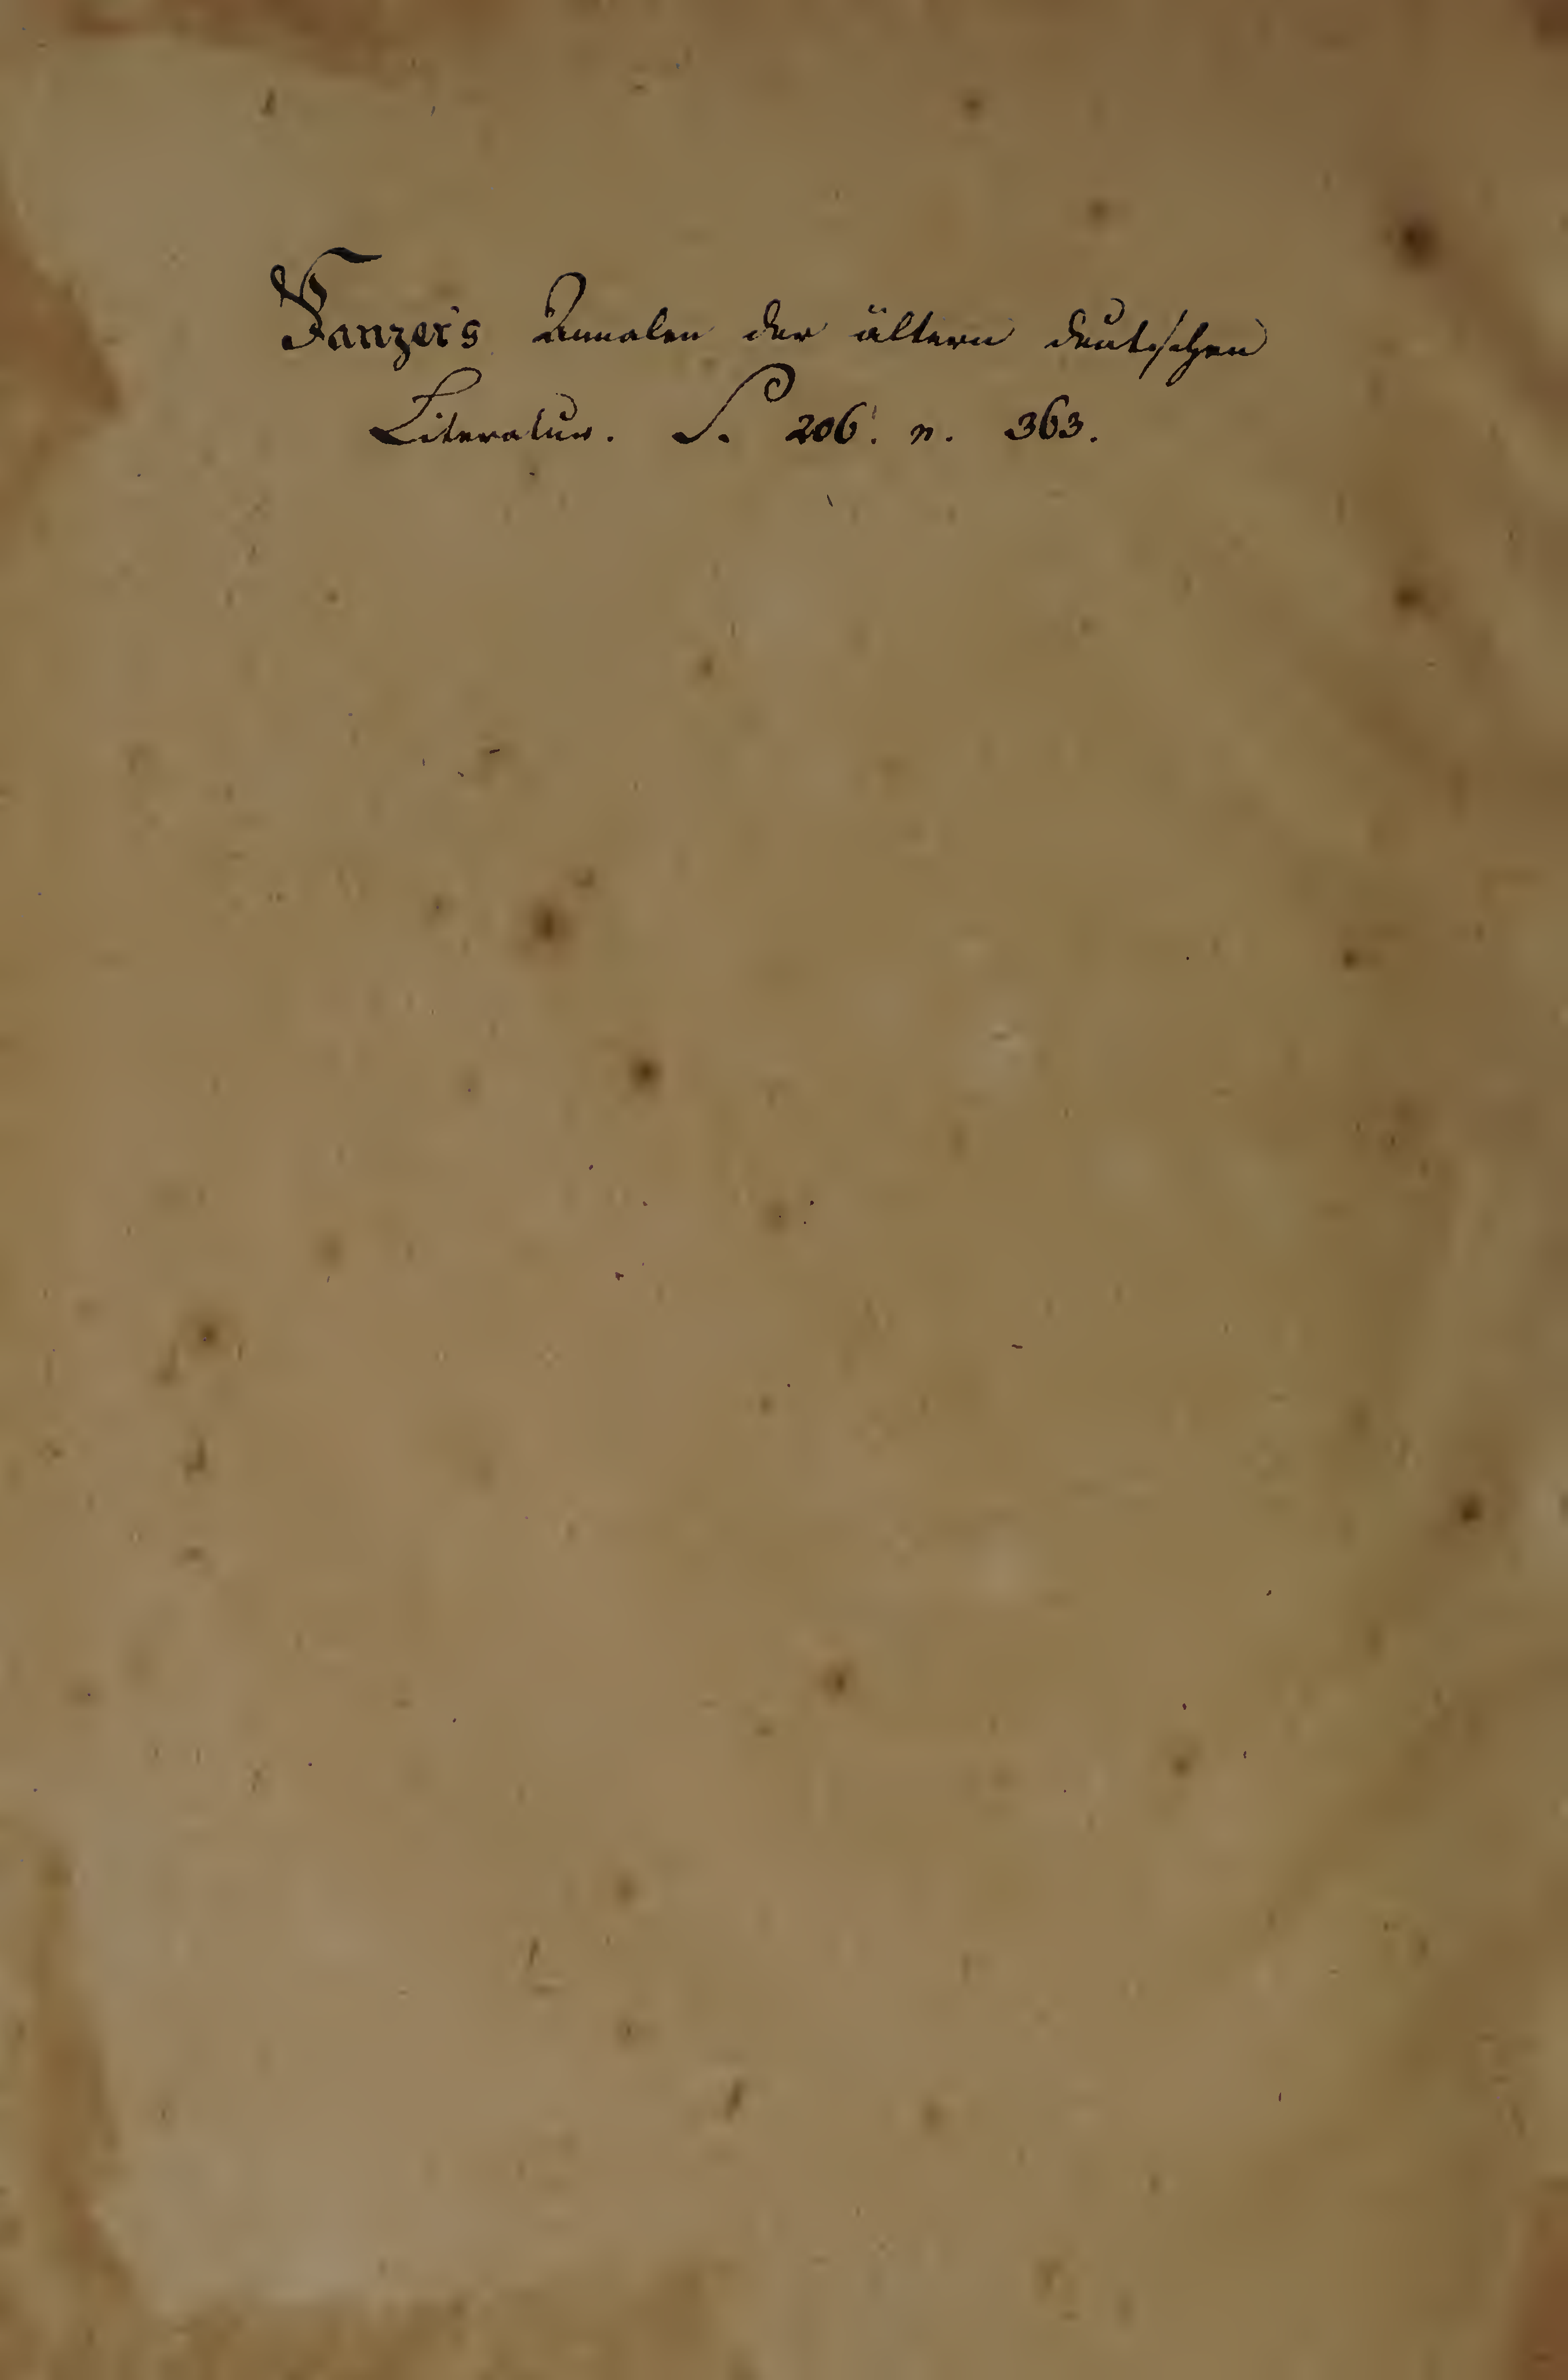 Panzer's Annalen der ältern deutschen
Literatur. S. 206. n. 363.